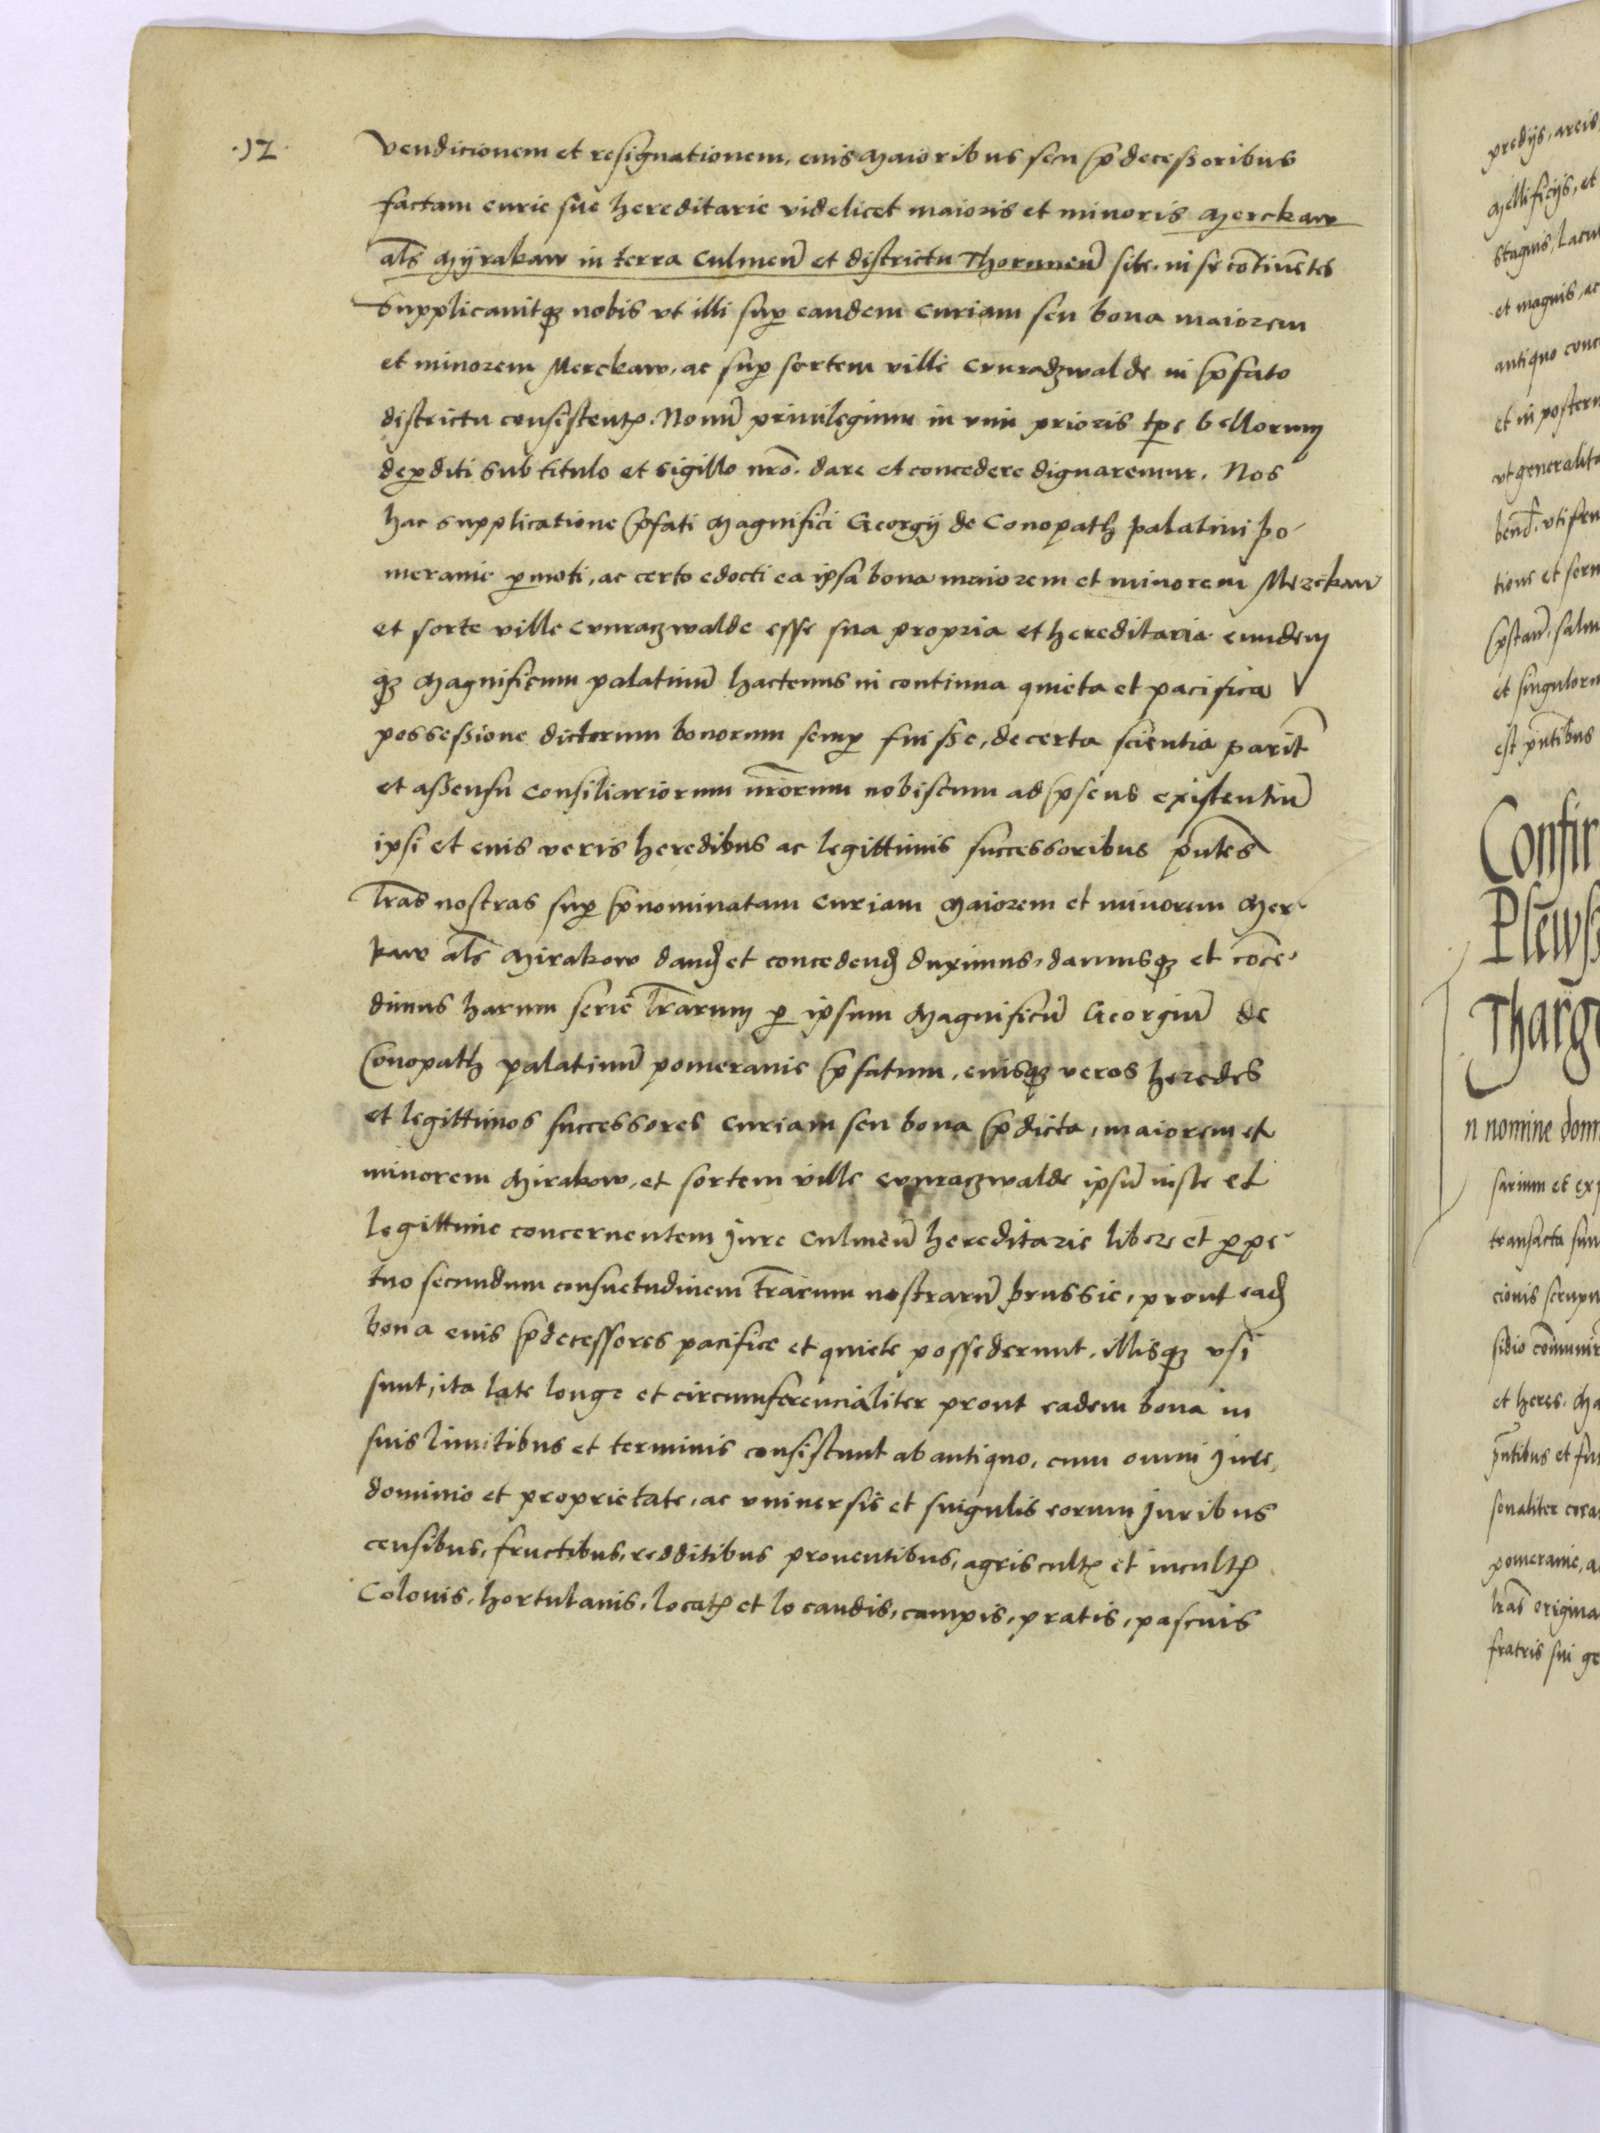 .12.
Vendicionem et resignationem, euis Maioribus seu p̄decessoribus
factam curie sue hereditarie videlicet maioris et minoris Merckaw
als̄ Myrakaw in terra Culmeñ et districtu Thorunen̄ site. in se cōtinētes
Supplicauitqꝫ nobis vt illi suꝑ eandem curiam seu bona maiorem
et minorem Merckaw, ac suꝑ sortem ville Cunradzwalde in p̄fato
districtu consistentꝭ. Nouū priuilegium in vim prioris tp̄e bellorum
deꝑditi sub titulo et sigillo nr̄o. dare et concedere dignaremur. Nos
hac supplicatione p̄fati Magnifici Georgij de Conopath palatini po-
meranie ꝑmoti, ac certo edocti ea ipsa bona maiorem et minorem Merckaw
et sorte ville Cunraczwalde esse sua propria et hereditaria eundem
qꝫ Magnificum palatinū hactenus in continua quieta et pacifica
possessione dictorum bonorum semꝑ fuisse, de certa scientia parit̄
et assensu Consiliariorum nr̄orum nobiscum ad p̄sens existentiū
ipsi et euis veris heredibus ac legittimis successoribus pn̄tes
lr̄as nostras suꝑ p̄nominatam curiam Maiorem et minorem Mer-
kaw als̄ Mirakow dand et concedend duximus, damusqꝫ et cōce-
dimus harum serie lr̄arum ꝑ ipsum Magnificū Georgiū de
Conopath palatinū pomeranie p̄fatum, euisqꝫ veros heredes
et legittimos successores curiam seu bona p̄dicta, maiorem et
minorem Mirakow, et sortem ville Cunraczwalde ipsū iuste et
legittime concernentem Jure Culmeñ hereditarie libere et ꝑpe-
tuo secundum consuetudinem tr̄arum nostrarū prussie, prout ead
bona euis p̄decessores pacifice et quiete possederunt, illisqꝫ vsi
sunt, ita late longe et circumferencialiter prout eadem bona in
suis limitibus et terminis consistunt ab antiquo, cum omni Jure,
dominio et proprietate, ac vniuersis et singulis eorum Juribus
censibus, fructibus, redditibus prouentibus, agris cultꝭ et incultꝭ
Colonis, hortulanis, locatꝭ et locandis, campis, pratis, pascuis
predijs, areis
Mellificijs, et
stagnis, lacu
et magnis, ac
antiquo conc
et in posteru
vt generalita
tione et seru
p̄stan̄, salu
et singuloru
est pn̄tibus
Confir
Plewß
Tharg
n nomine dom
sarium et exp
transacta sun
cionis scrupu
sidio cōmunir
et heres. Ma
pn̄tibus et fu
sonaliter cora
pomeranie, a
lr̄as origina
fratris sui ge